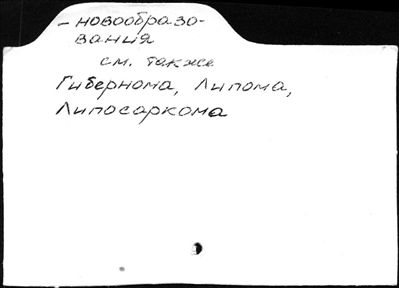 – новообразо-
вания
см. также
Гибернома, Липома,
Липосаркома